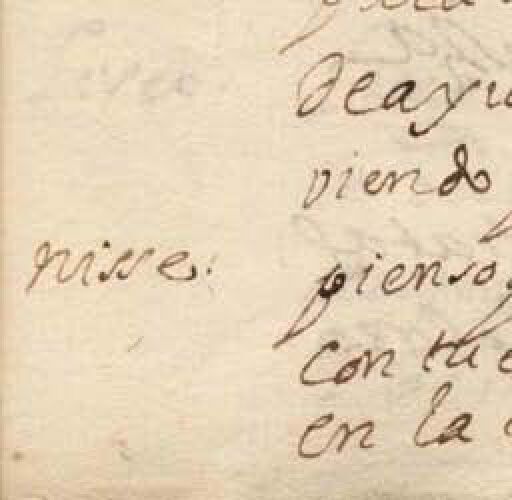 de ayu
viendo
nisse. pienso,
con tu e
en la